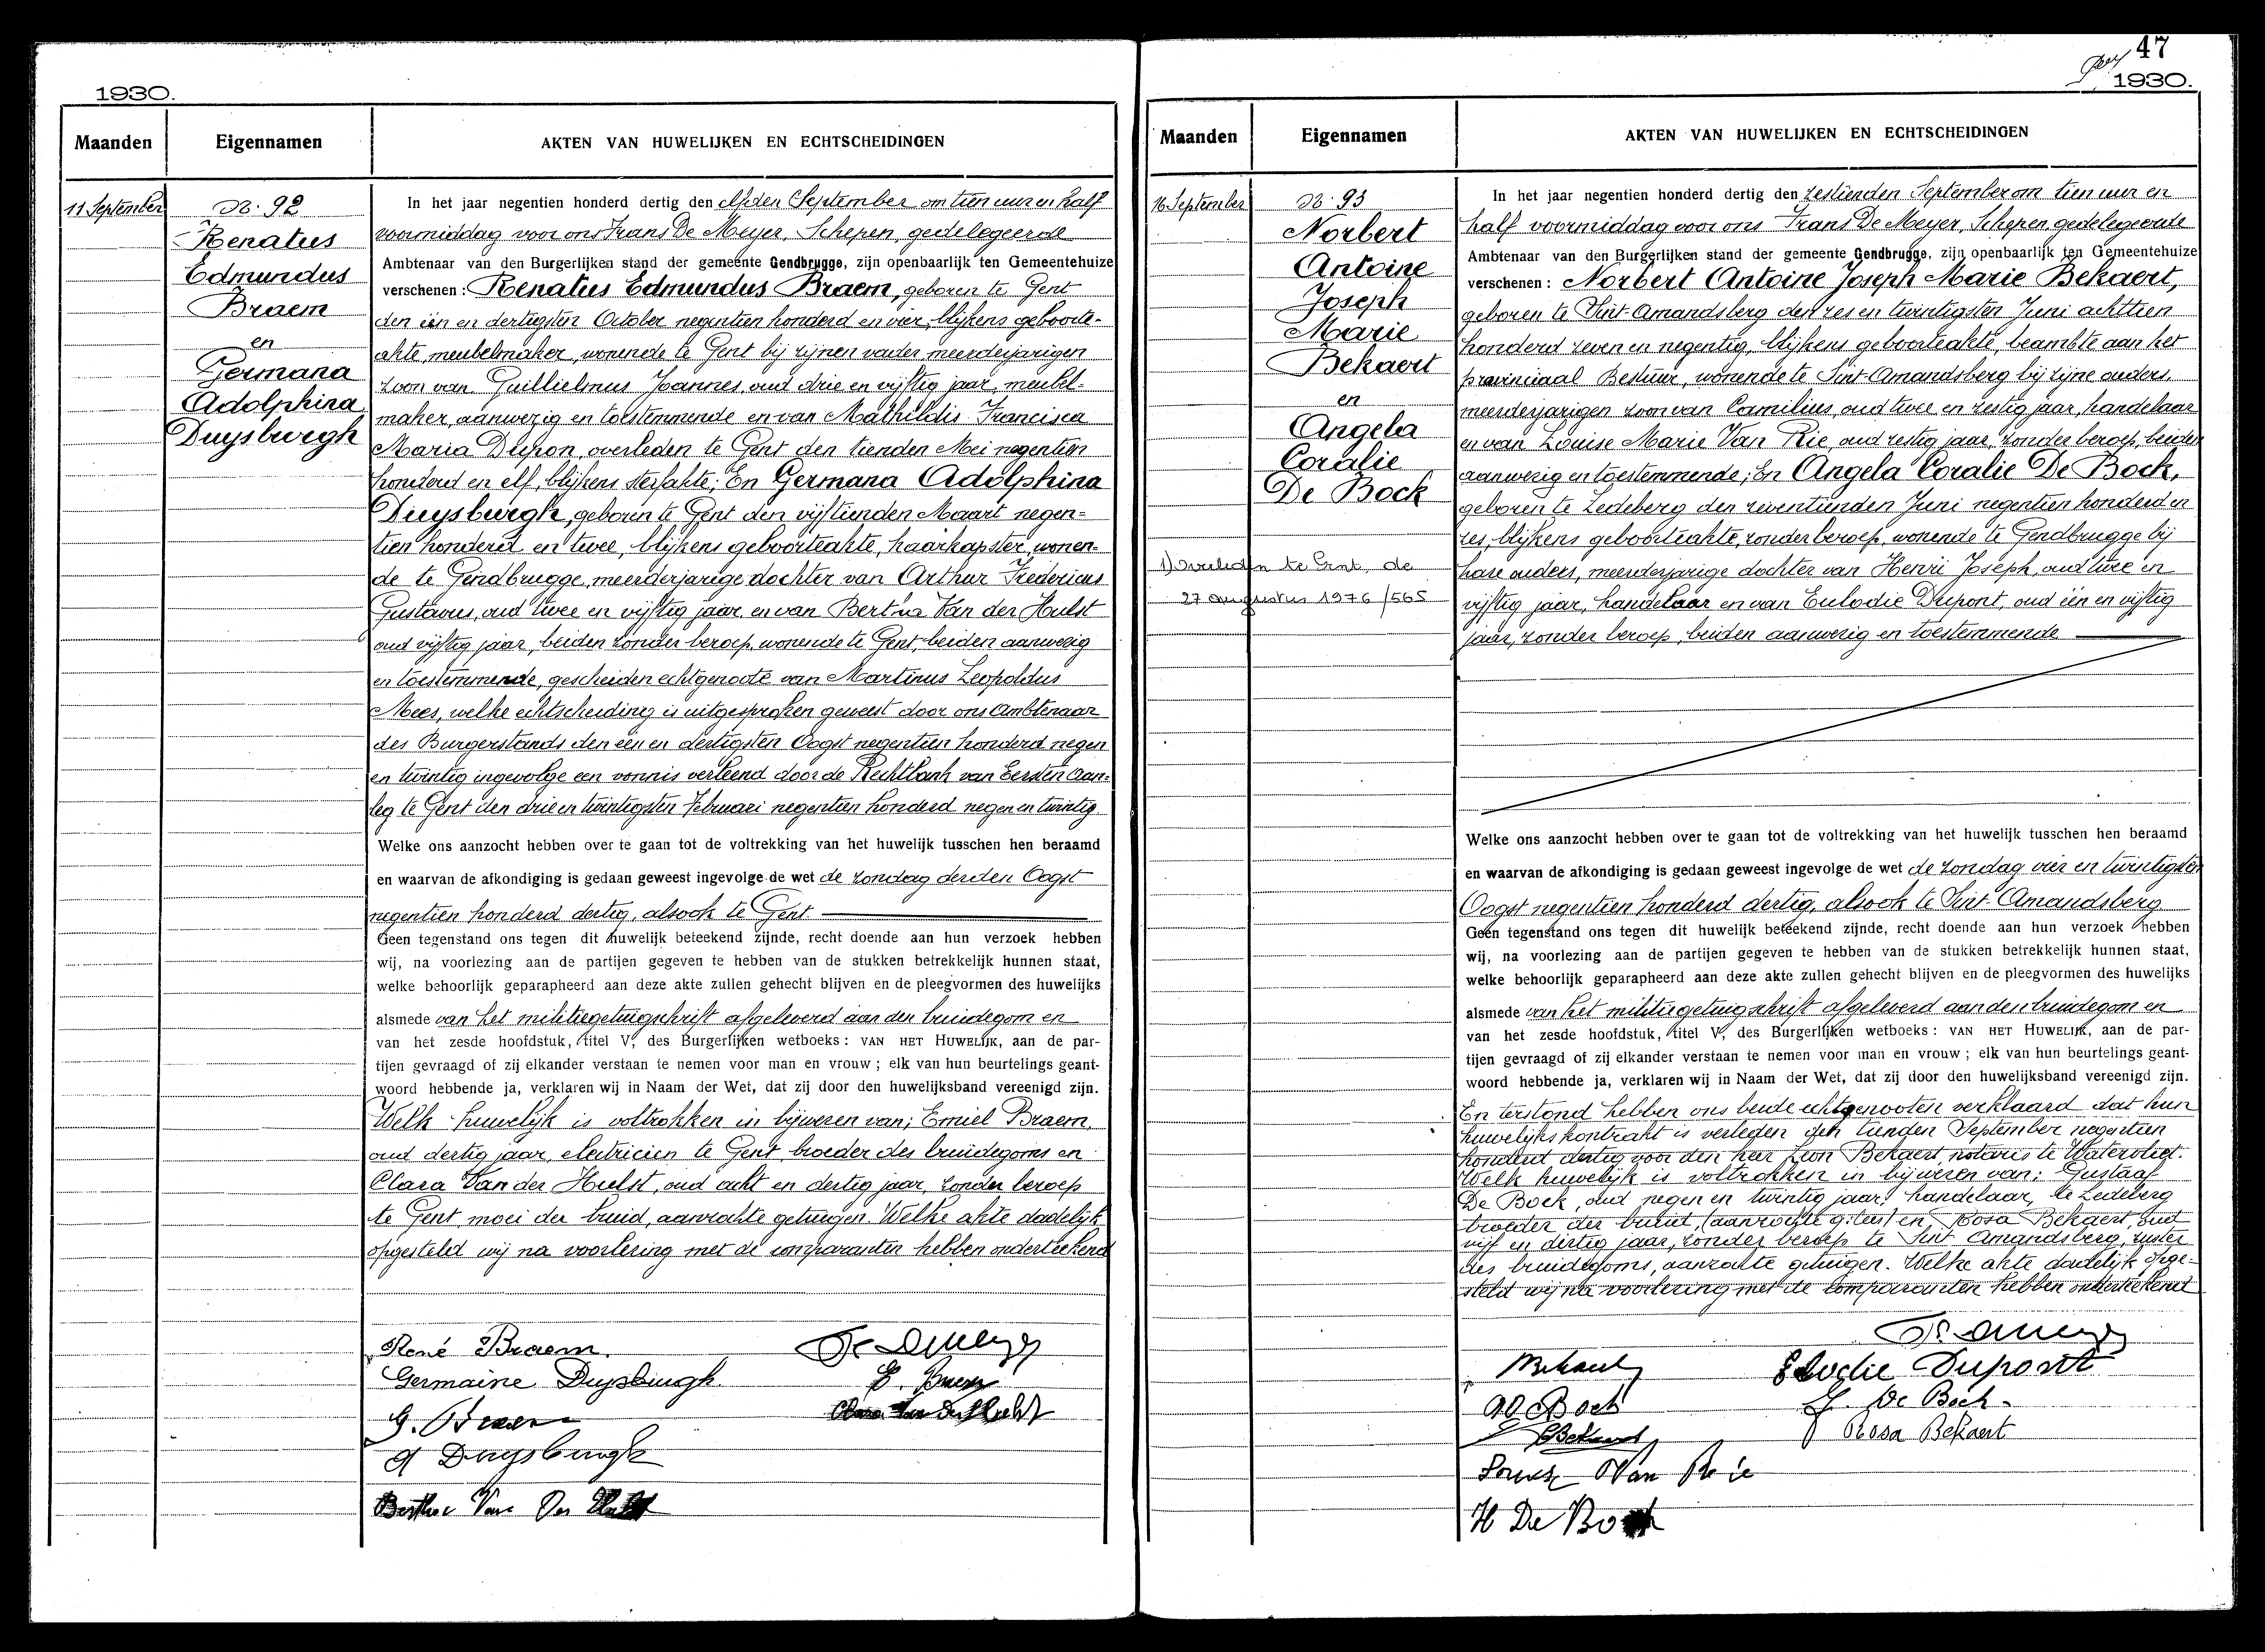 1930.
Maanden
Eigennamen
AKTEN VAN HUWELIJKEN EN ECHTSCHEIDINGEN
11 September
No. 92
Renatus
Edmundus
Braem
en
Germana
Adolphina
Duysburgh
In het jaar negentien honderd dertig den elfden September om tien uur en half
voormiddag voor ons Frans De Meyer, Schepen, gedelegeerde
Ambtenaar van den Burgerlijken stand der gemeente Gendbrugge, zijn openbaarlijk ten Gemeentehuize
verschenen: Renatus Edmundus Braem, geboren te Gent
den één en dertigsten October negentien honderd en vier, blijkens geboorte-
akte, meubelmaker, wonende te Gent bij zijnen vader meerderjarigen
zoon van Guillielmus Joannes, oud drie en vijftig jaar, meubel-
maker, aanwezig en toestemmende en van Mathildis Francisca
Maria Dupon, overleden te Gent den tienden Mei negentien
honderd en elf, blijkens sterfakte; En Germana Adolphina
Duysburgh, geboren te Gent den vijftienden Maart negen=
tien honderd en twee, blijkens geboorteakte, haarkapster, wonen-
de te Gendbrugge, meerderjarige dochter van Arthur Fredericus
Gustavus, oud twee en vijftig jaar, en van Bertha Van der Hulst
oud vijftig jaar, beiden zonder beroep, wonende te Gent, beiden aanwezig
en toestemmende, gescheiden echtgenoote van Martinus Leopoldus
Mees, welke echtscheiding is uitgesproken geweest door ons Ambtenaar
des Burgerstands den één en dertigsten Oogst negentien honderd negen
en twintig ingevolge een vonnis verleend door de Rechtbank van Eersten Aan=
leg te Gent den drie en twintigsten Februari negentien honderd negen en twintig.
Welke ons aanzocht hebben over te gaan tot de voltrekking van het huwelijk tusschen hen beraamd
en waarvan de afkondiging is gedaan geweest ingevolge de wet de zondag derden Oogst
negentien honderd dertig, alsook te Gent
Geen tegenstand ons tegen dit huwelijk beteekend zijnde, recht doende aan hun verzoek hebben
wij, na voorlezing aan de partijen gegeven te hebben van de stukken betrekkelijk hunnen staat,
welke behoorlijk geparapheerd aan deze akte zullen gehecht blijven en de pleegvormen des huwelijks
alsmede van het militiegetuigschrift afgeleverd aan den bruidegom en
van het zesde hoofdstuk, titel V, des Burgerlijken wetboeks: VAN HET HUWELIJK, aan de par-
tijen gevraagd of zij elkander verstaan te nemen voor man en vrouw; elk van hun beurtelings geant-
woord hebbende ja, verklaren wij in Naam der Wet, dat zij door den huwelijksband vereenigd zijn.
Welk huwelijk is voltrokken in bijwezen van; Emiel Braem,
oud dertig jaar, electricien te Gent, broeder des bruidegoms en
Clara Van der Hulst, oud acht en dertig jaar, zonder beroep
te Gent, moei der bruid, aanzochte getuigen. Welke akte dadelijk
opgesteld wij na voorlezing met de comparanten hebben onderteekend
René Braem.
Fr. De Meyer
Germaine Duysburgh
E. Braem
G. Braem
Clara Van Der Hulst
A Duysburgh
Berthe Van Der Hulst
47
1930.
Maanden
Eigennamen
AKTEN VAN HUWELIJKEN EN ECHTSCHEIDINGEN
16 September
No. 93
Norbert
Antoine
Joseph
Marie
Bekaert
en
Angela
Coralie
De Bock
1) Overleden te Gent, de
27 augustus 1976/565
In het jaar negentien honderd dertig den zestienden September om tien uur en
half voormiddag voor ons Frans De Meyer, Schepen, gedelegeerde
Ambtenaar van den Burgerlijken stand der gemeente Gendbrugge, zijn openbaarlijk ten Gemeentehuize
verschenen: Norbert Antoine Joseph Marie Bekaert,
geboren te Sint-Amandsberg den zes en twintigsten Juni achttien
honderd zeven en negentig, blijkens geboorteakte, beambte aan het
provinciaal Bestuur, wonende te Sint-Amandsberg bij zijne ouders,
meerderjarigen zoon van Camilius, oud twee en zestig jaar, handelaar
en van Louise Marie Van Rie, oud zestig jaar, zonder beroep, beiden
aanwezig en toestemmende; En Angela Coralie De Bock,
geboren te Ledeberg den zeventienden Juni negentien honderd en
zes, blijkens geboorteakte, zonder beroep, wonende te Gendbrugge bij
hare ouders, meerderjarige dochter van Henri Joseph, oud twee en
vijftig jaar, handelaar en van Eulodie Dupont, oud één en vijftig
jaar, zonder beroep, beiden aanwezig en toestemmende
Welke ons aanzocht hebben over te gaan tot de voltrekking van het huwelijk tusschen hen beraamd
en waarvan de afkondiging is gedaan geweest ingevolge de wet de zondag vier en twintigsten
Oogst negentien honderd dertig, alsook te Sint-Amandsberg
Geen tegenstand ons tegen dit huwelijk beteekend zijnde, recht doende aan hun verzoek hebben
wij, na voorlezing aan de partijen gegeven te hebben van de stukken betrekkelijk hunnen staat,
welke behoorlijk geparapheerd aan deze akte zullen gehecht blijven en de pleegvormen des huwelijks
alsmede van het militiegetuigschrift afgeleverd aan den bruidegom en
van het zesde hoofdstuk, titel V, des Burgerlijken wetboeks: VAN HET HUWELIJK, aan de par-
tijen gevraagd of zij elkander verstaan te nemen voor man en vrouw; elk van hun beurtelings geant-
woord hebbende ja, verklaren wij in Naam der Wet, dat zij door den huwelijksband vereenigd zijn.
En terstond hebben ons beide echtgenooten verklaard dat hun
huwelijkskontrakt is verleden den tienden September negentien
honderd dertig voor den heer Leon Bekaert, notaris te Watervliet.
Welk huwelijk is voltrokken in bijwezen van: Gustaaf
De Bock, oud negen en twintig jaar, handelaar, te Ledeberg
broeder der bruid, (aanzochte g.tuis) en Rosa Bekaert, oud
vijf en dertig jaar, zonder beroep te Sint Amandsberg, zuster
des bruidegoms, aanzochte getuigen. Welke akte dadelijk opge-
steld wij na voorlezing met de comparanten hebben onderteekend
Fr. De Meyer
NBekaert
Elodie Dupont
A De Bock
G. De Bock
CBekaert
Rosa Bekaert
Louise Van Rie
H De Bock